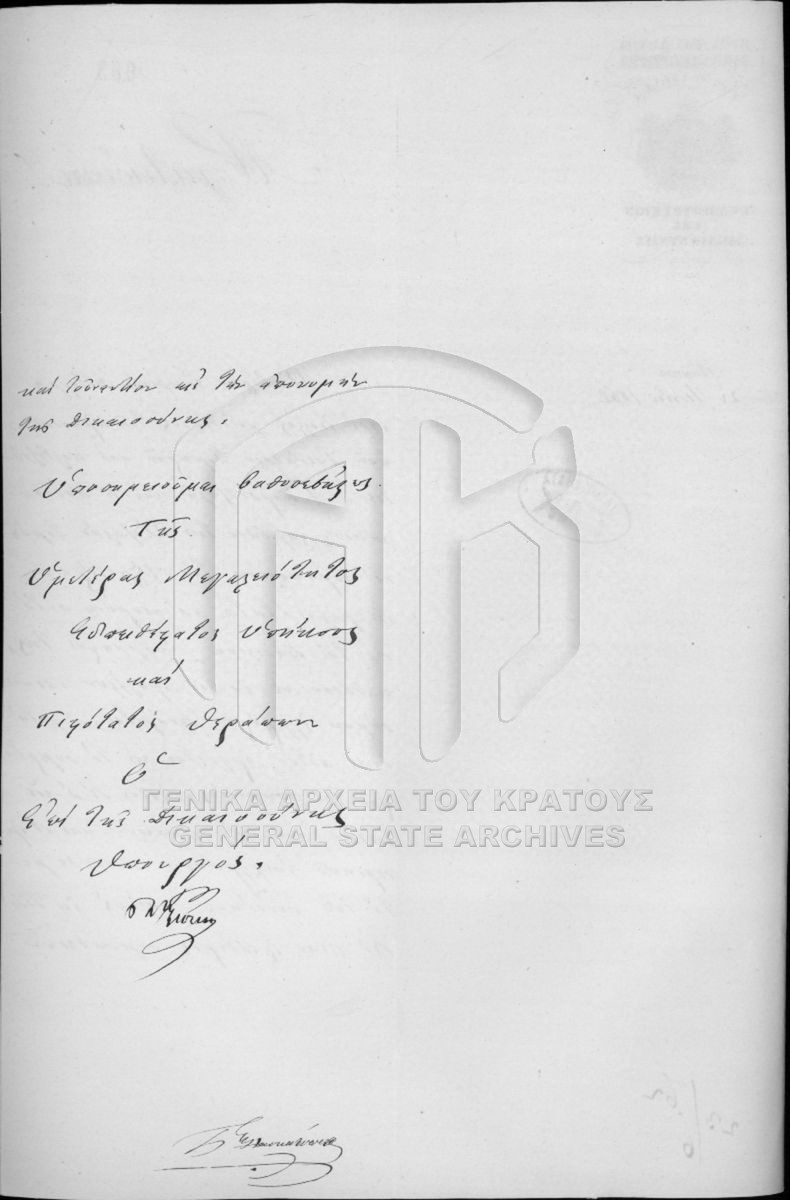 καὶ τοὐναντίον εἰς τὴν ἀπονομὴν
τῆς δικαιοσύνης.
Ὑποσημειοῦμαι βαθυσεβάστως
Τῆς
Ὑμετέρας Μεγαλειότητος
Εὐπειθέστατος ὑπήκοος
καὶ
πιστότατος θεράπων
Ὁ
Ἐπὶ τῆς Δικαιοσύνης
Ὑπουργός.
ΓΕΝΙΚΑ ΑΡΧΕΙΑ ΤΟΥ ΚΡΑΤΟΥΣ
GENERAL STATE ARCHIVES